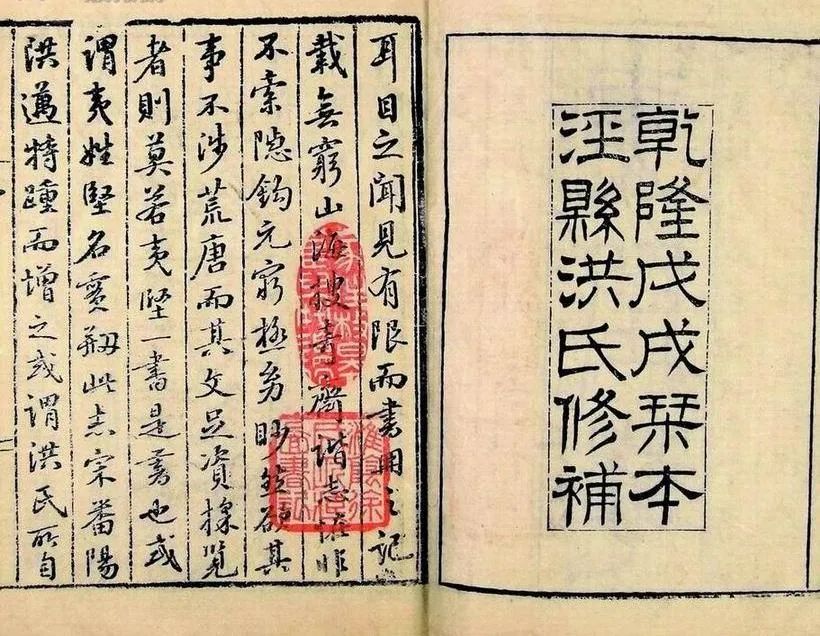 乾隆戊戌栞本
涇縣洪氏修補
耳目之聞見有限而書冊之記
載無窮山海搜奇齊諧志怪非
不索隱鈎元窮極幼眇然欲其
事不涉荒唐而其文足資採覽
者則莫若夷堅一書是書也或
謂夷姓堅名實剏此志宋番陽
洪邁特踵而增之或謂洪氏所自